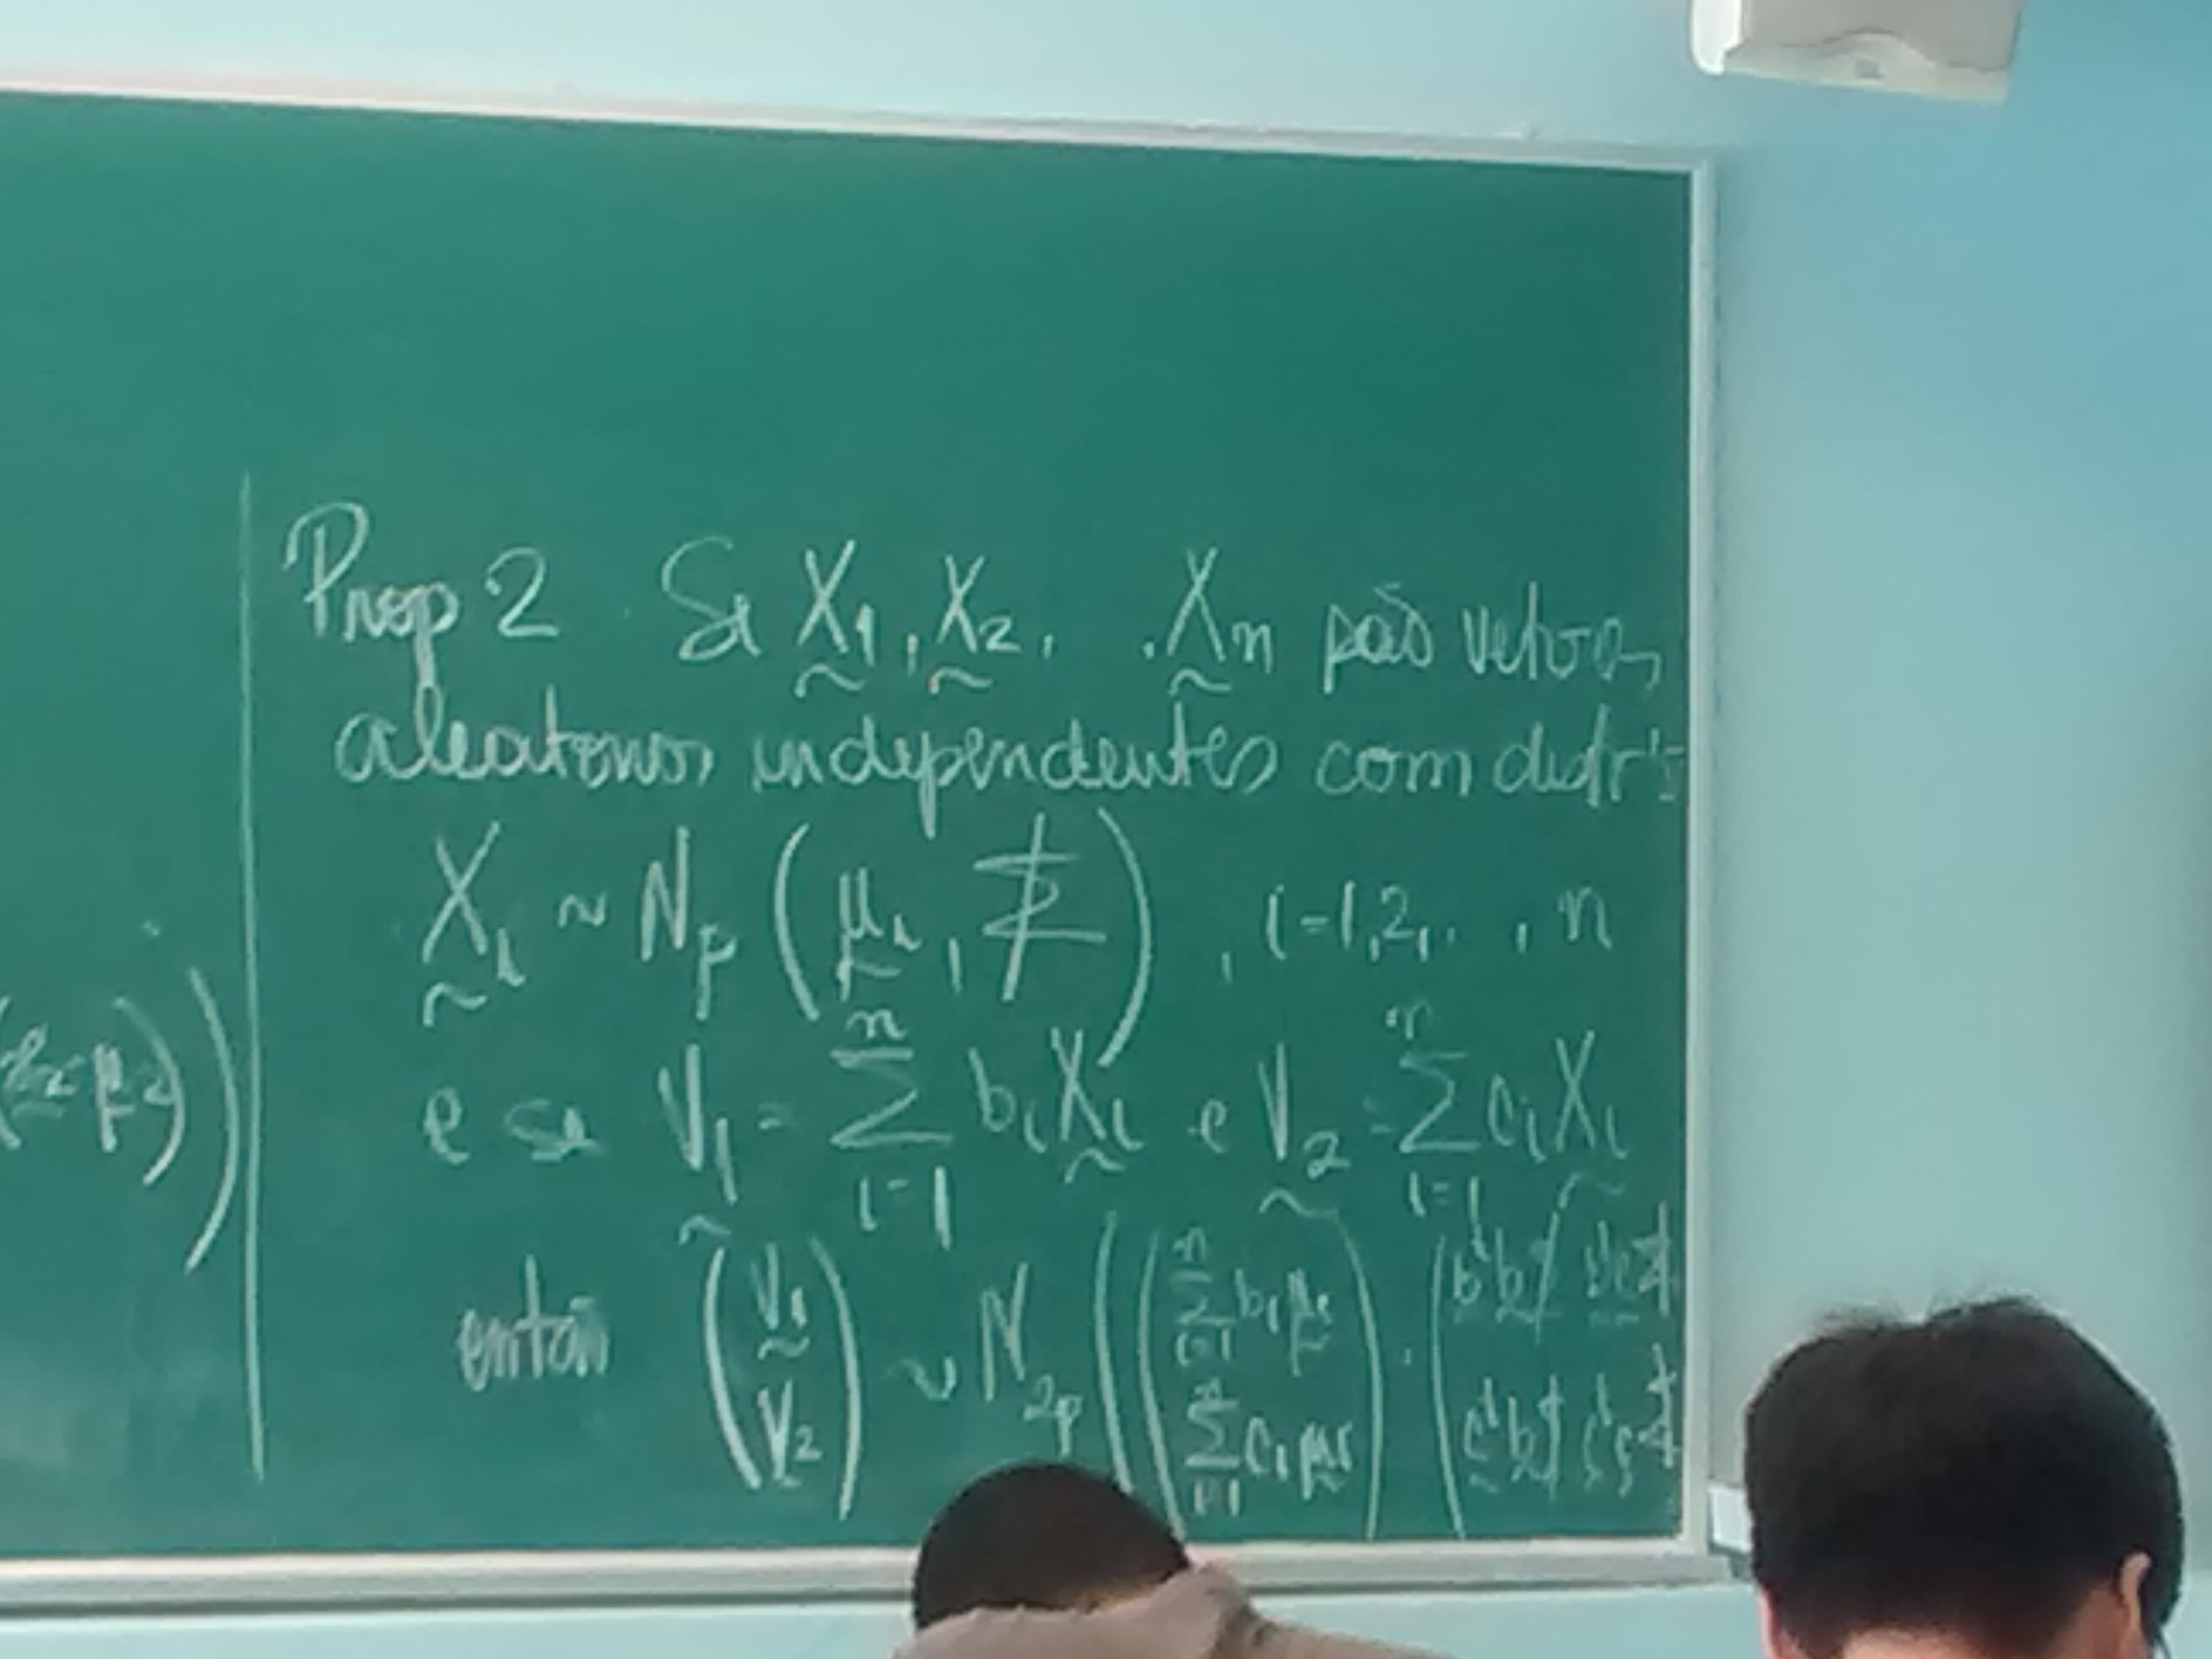 Prop 2. Se X̰₁, X̰₂, . . X̰ₙ são vetores
aleatórios independentes com distri-
X̰ᵢ ~ Nₚ (μ̰ᵢ, Σ̸), i=1,2,. . , n
(μ̰₂)) 
e se V̰₁ = Σᵢ₌₁ⁿ bᵢX̰ᵢ e V̰₂ = Σᵢ₌₁ⁿ cᵢX̰ᵢ
então (V̰₁ V̰₂) ~ N₂ₚ ((Σᵢ₌₁ⁿ bᵢμ̰ᵢ Σᵢ₌₁ⁿ cᵢμ̰ᵢ), (b̰'b̰Σ̸ b̰'c̰Σ̸ c̰'b̰Σ̸ c̰'c̰Σ̸